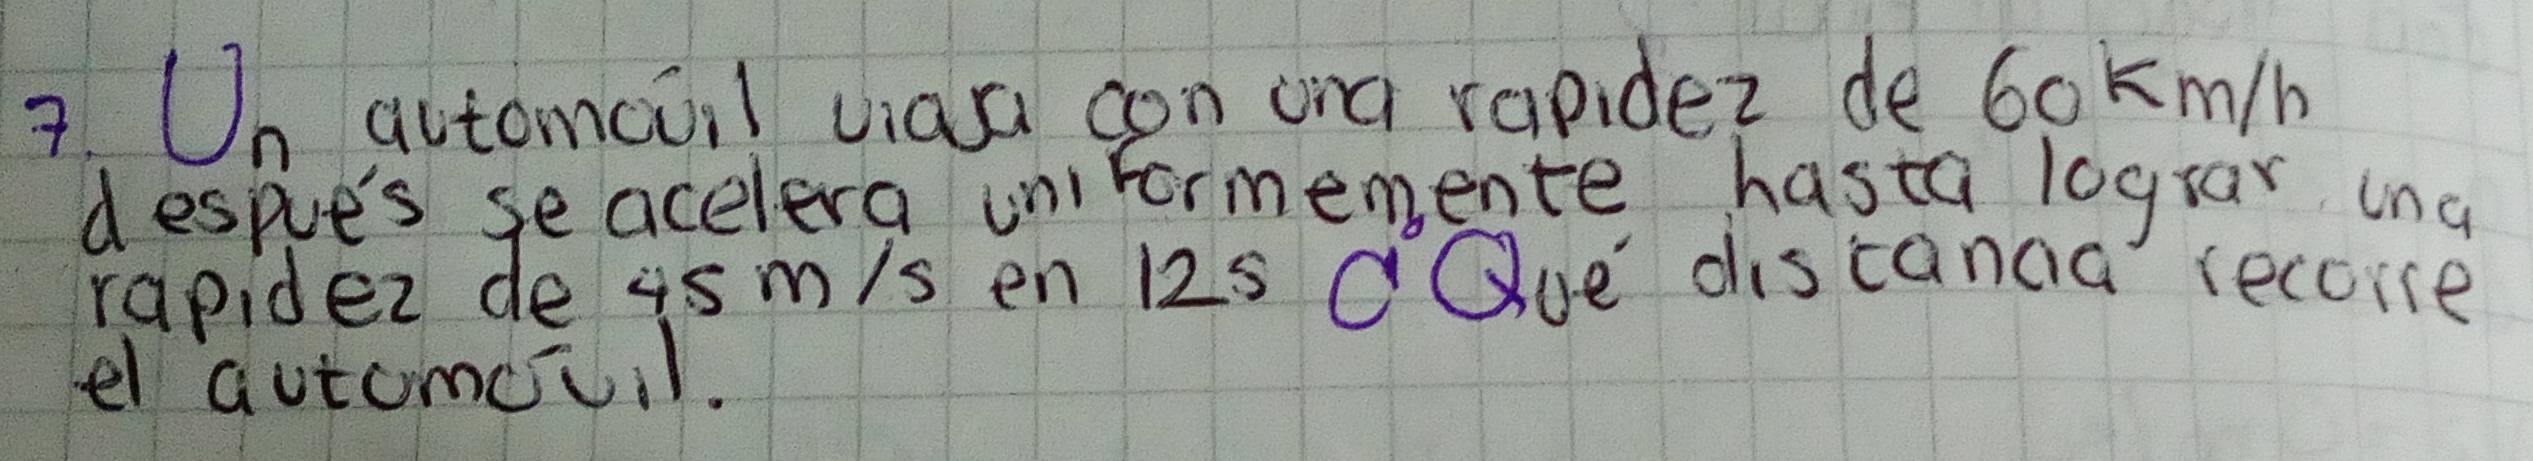 7. Un automovil viaja con una rapidez de 60 Km/h
después se acelera uniformemente hasta lograr una
rapidez de 45 m/s en 12s ¿Qué distancia recorre
el automóvil.